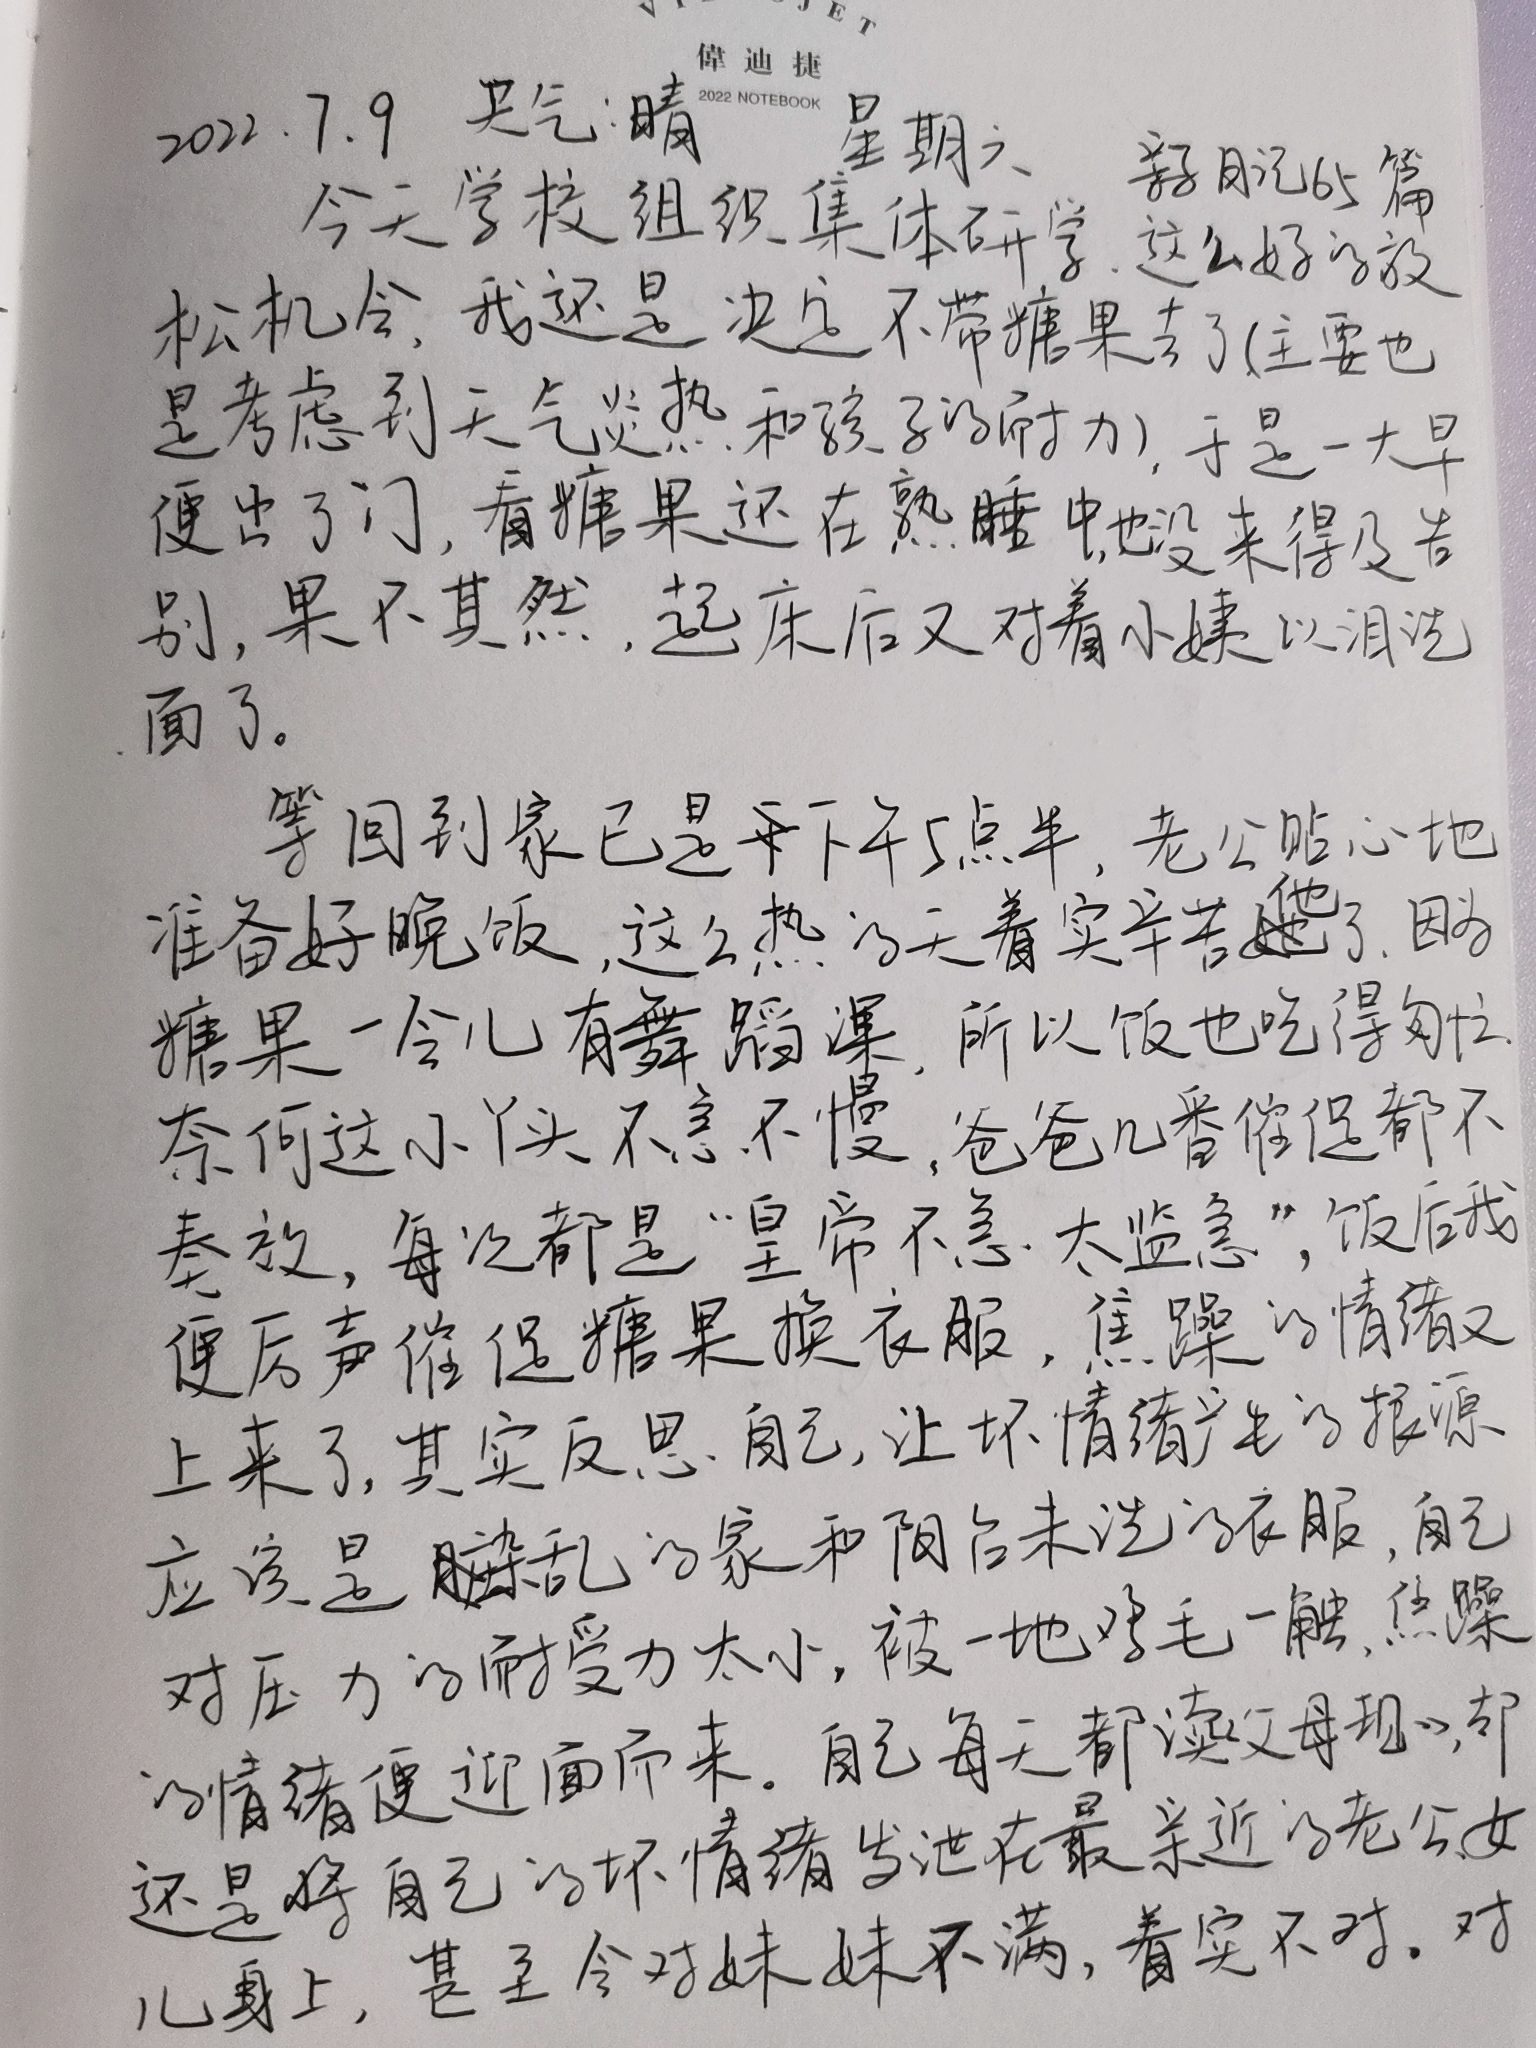 偉迪捷
2022 NOTEBOOK
2022.7.9 天气:晴 星期六
亲子日记65篇
今天学校组织集体研学,这么好的放
松机会,我还是决定不带糖果去了(主要也
是考虑到天气炎热和孩子的耐力),于是一大早
便出了门,看糖果还在熟睡中,也没来得及告
别,果不其然,起床后又对着小姨以泪洗
面了。
等回到家已是下午5点半,老公贴心地
准备好晚饭,这么热的天着实辛苦他了,因为
糖果一会儿有舞蹈课,所以饭也吃得匆忙.
奈何这小丫头不急不慢,爸爸几番催促都不
奏效,每次都是“皇帝不急太监急”,饭后我
便厉声催促糖果换衣服,焦躁的情绪又
上来了,其实反思自己,让坏情绪产生的根源
应该是脏乱的家和阳台未洗的衣服,自己
对压力的耐受力太小,被一地鸡毛一触,焦躁
的情绪便迎面而来。自己每天都读《父母规》,却
还是将自己的坏情绪发泄在最亲近的老公、女
儿身上,甚至会对妹妹不满,着实不对。对